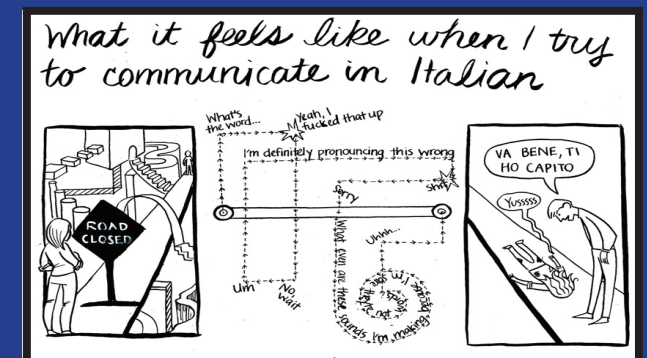 What it feels like when I try
to communicate in Italian
ROAD
CLOSED
What's
the word...
Yeah, I
fucked that up
I'm definitely pronouncing this wrong
Um
No
wait
Sorry
shit
What even are these sounds I'm making
Uhhh...
VA BENE, TI
HO CAPITO
Yusssss